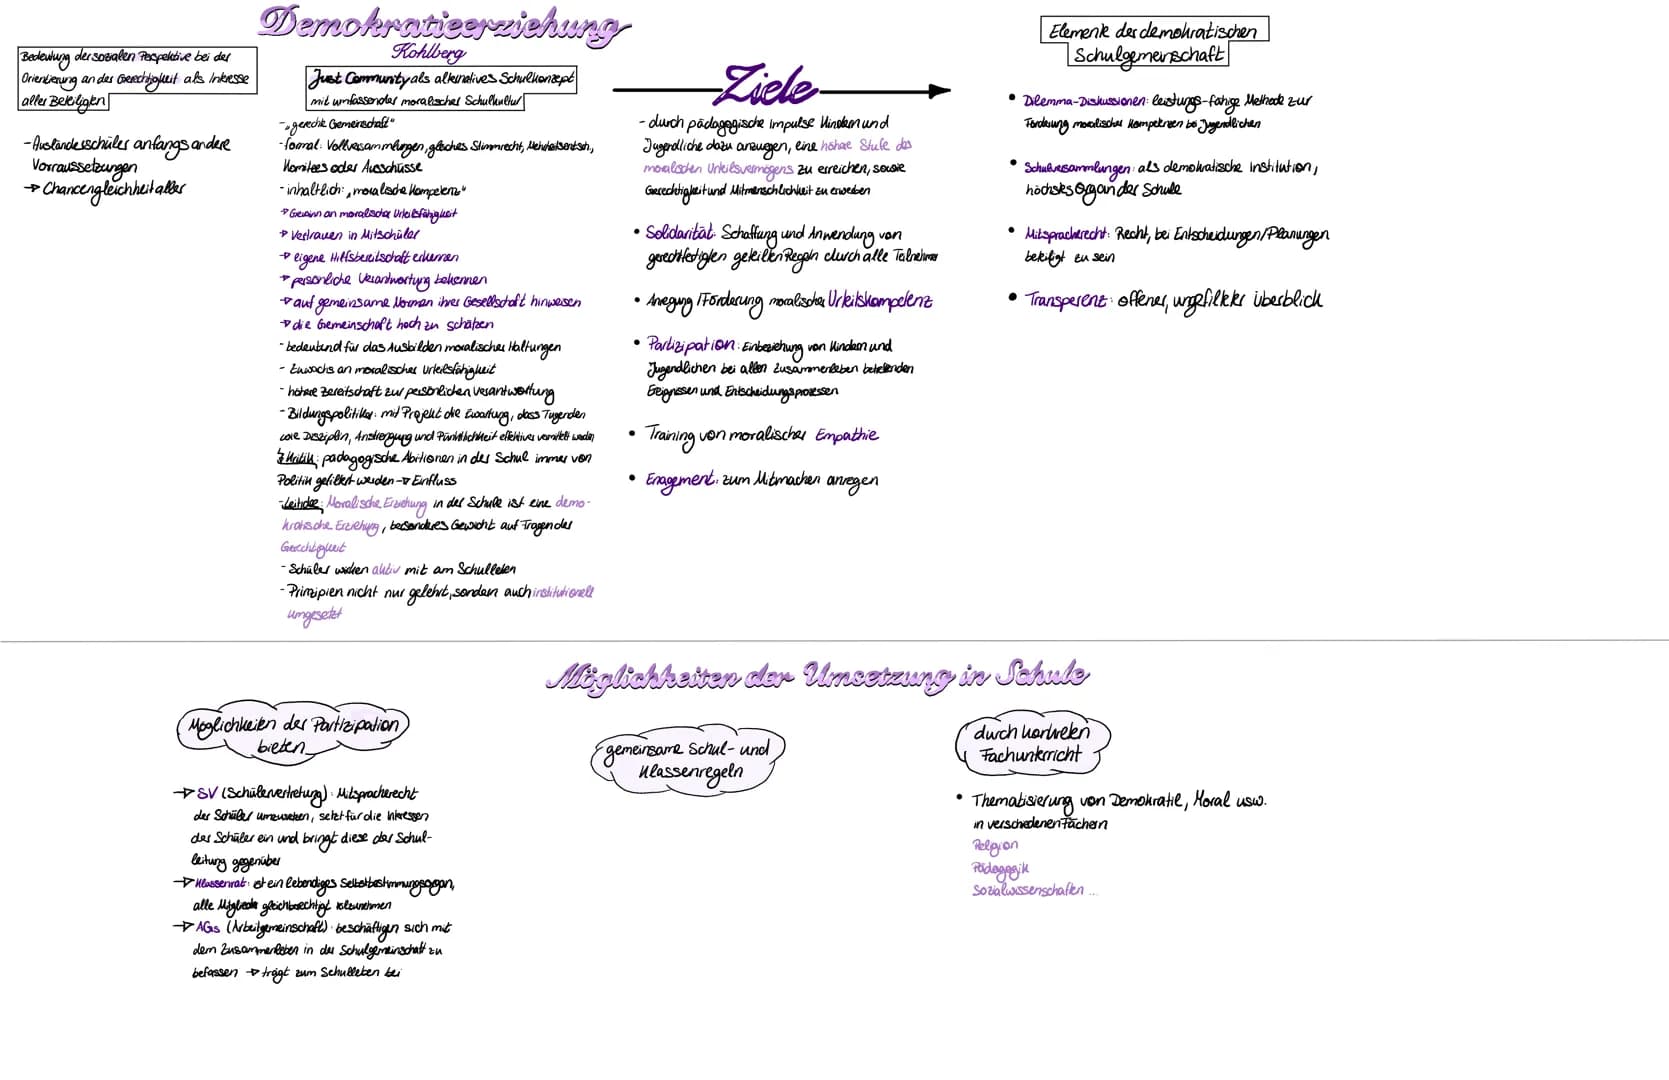 Demokratieerziehung
Kohlberg
Bedeutung der sozialen Perspektive bei der
Orientierung an der Gerechtigkeit als Interesse
aller Beteiligten
- Ausländerschüler anfangs andere
Vorraussetzungen
→ Chancengleichheit aller
Just Community als alternatives Schulkonzept
mit umfassender moralischer Schulkultur
- „gerechte Gemeinschaft“
- formal: Vollversammlungen, gleiches Stimmrecht, Mehrheitsentsch,
Komitees oder Ausschüsse
- inhaltlich: „moralische Kompetenz“
→ Gewinn an moralischer Urteilsfähigkeit
→ Vertrauen in Mitschüler
→ eigene Hilfsbereitschaft erkennen
→ persönliche Verantwortung bekennen
→ auf gemeinsame Normen ihrer Gesellschaft hinweisen
→ die Gemeinschaft hoch zu schätzen
- bedeutend für das Ausbilden moralischer Haltungen
- Zuwachs an moralischer Urteilsfähigkeit
- höhere Bereitschaft zur persönlichen Verantwortung
- Bildungspolitiker: mit Projekt die Erwartung, dass Tugenden
wie Disziplin, Anstrengung und Pünktlichkeit effektiver vermittelt werden
Kritik: pädagogische Abitionen in der Schul immer von
Politik gefiltert werden → Einfluss
- Leitidee: Moralische Erziehung in der Schule ist eine demo-
kratische Erziehung, besonderes Gewicht auf Fragen der
Gerechtigkeit
- Schüler wirken aktiv mit am Schulleben
- Prinzipien nicht nur gelehrt, sondern auch institutionell
umgesetzt
Ziele
- durch pädagogische Impulse Kindern und
Jugendliche dazu anzuregen, eine höhere Stufe des
moralischen Urteilsvermögens zu erreichen, sowie
Gerechtigkeit und Mitmenschlichkeit zu erwerben
• Solidarität: Schaffung und Anwendung von
gerechtfertigten geteilten Regeln durch alle Teilnehmer
• Anregung / Förderung moralischer Urteilskompetenz
• Partizipation: Einbeziehung von Kindern und
Jugendlichen bei allen Zusammenleben betreffenden
Ereignissen und Entscheidungsprozessen
• Training von moralischer Empathie
• Enagement: zum Mitmachen anregen
Elemente der demokratischen
Schulgemeinschaft
• Dilemma-Diskussionen: leistungs-fähige Methode zur
Förderung moralischer Kompetenzen bei Jugendlichen
• Schulversammlungen: als demokratische Institution,
höchstes Organ der Schule
• Mitspracherecht: Recht, bei Entscheidungen/Planungen
beteiligt zu sein
• Transparenz: offener, ungefilteter Überblick
Möglichkeiten der Umsetzung in Schule
Möglichkeiten der Partizipation
bieten
→ SV (Schülervertretung): Mitspracherecht
der Schüler umzusetzen, setzt für die Interessen
der Schüler ein und bringt diese der Schul-
leitung gegenüber
→ Klassenrat: ist ein lebendiges Selbstbestimmungsorgan,
alle Mitglieder gleichberechtigt teilzunehmen
→ AGs (Arbeitgemeinschaft): beschäftigen sich mit
dem Zusammenleben in der Schulgemeinschaft zu
befassen → trägt zum Schulleben bei
gemeinsame Schul- und
Klassenregeln
durch konkreten
Fachunterricht
• Thematisierung von Demokratie, Moral usw.
in verschiedenen Fächern
Religion
Pädagogik
Sozialwissenschaften ...